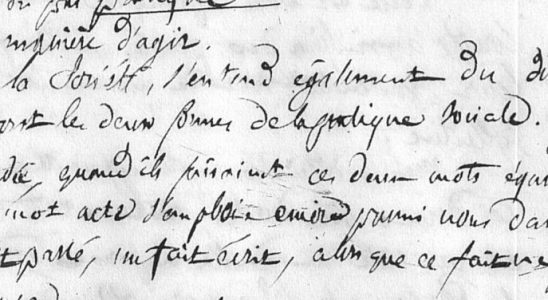 ou par pratique
manière d'agir.
la Société, s'entend également du d
sont les deux formes de la pratique sociale.
quand ils faisaient ces deux mots équi
mot acte s'emploie encore parmi nous da
t passé, un fait écrit, alors que ce fait ne